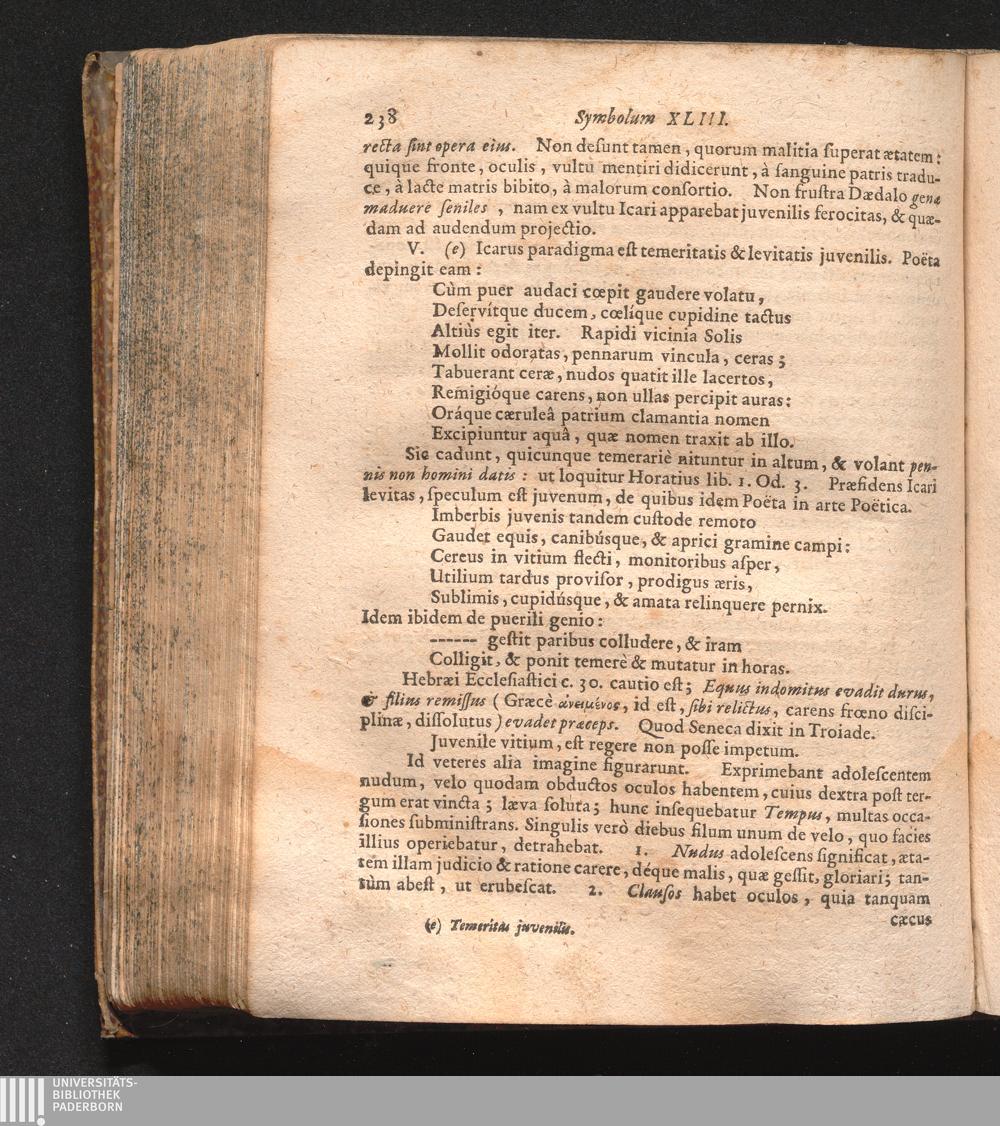 238 Symbolum XLIII.
recta ſint opera eius. Non deſunt tamen, quorum malitia ſuperat ætatem:
quique fronte, oculis, vultu mentiri didicerunt, à ſanguine patris tradu-
ce, à lacte matris bibito, à malorum conſortio. Non fruſtra Dædalo genæ
maduere ſeniles, nam ex vultu Icari apparebat juvenilis ferocitas, & quæ-
dam ad audendum projectio.
V. (e) Icarus paradigma eſt temeritatis & levitatis juvenilis. Poëta
depingit eam:
Cùm puer audaci cœpit gaudere volatu,
Deſervítque ducem, cœlíque cupidine tactus
Altiùs egit iter. Rapidi vicinia Solis
Mollit odoratas, pennarum vincula, ceras;
Tabuerant ceræ, nudos quatit ille lacertos,
Remigióque carens, non ullas percipit auras:
Oráque cæruleâ patrium clamantia nomen
Excipiuntur aquâ, quæ nomen traxit ab illo.
Sic cadunt, quicunque temerariè nituntur in altum, & volant pen-
nis non homini datis: ut loquitur Horatius lib. 1. Od. 3. Præfidens Icari
levitas, ſpeculum eſt juvenum, de quibus idem Poëta in arte Poëtica.
Imberbis juvenis tandem cuſtode remoto
Gaudet equis, canibúsque, & aprici gramine campi:
Cereus in vitium flecti, monitoribus aſper,
Utilium tardus proviſor, prodigus æris,
Sublimis, cupidúsque, & amata relinquere pernix.
Idem ibidem de puerili genio:
------ geſtit paribus colludere, & iram
Colligit, & ponit temerè & mutatur in horas.
Hebræi Eccleſiaſtici c. 30. cautio eſt; Equus indomitus evadit durus,
& filius remiſſus (Græcè ἀνειμένος, id eſt, ſibi relictus, carens frœno diſci-
plinæ, diſſolutus) evadet præceps. Quod Seneca dixit in Troiade.
Juvenile vitium, eſt regere non poſſe impetum.
Id veteres alia imagine figurarunt. Exprimebant adoleſcentem
nudum, velo quodam obductos oculos habentem, cuius dextra poſt ter-
gum erat vincta; læva ſoluta; hunc inſequebatur Tempus, multas occa-
ſiones ſubminiſtrans. Singulis verò diebus filum unum de velo, quo facies
illius operiebatur, detrahebat. 1. Nudus adoleſcens ſignificat, æta-
tem illam judicio & ratione carere, déque malis, quæ geſſit, gloriari; tan-
tùm abeſt, ut erubeſcat. 2. Clauſos habet oculos, quia tanquam
cæcus
(e) Temeritas juvenilis.
UNIVERSITÄTS-
BIBLIOTHEK
PADERBORN